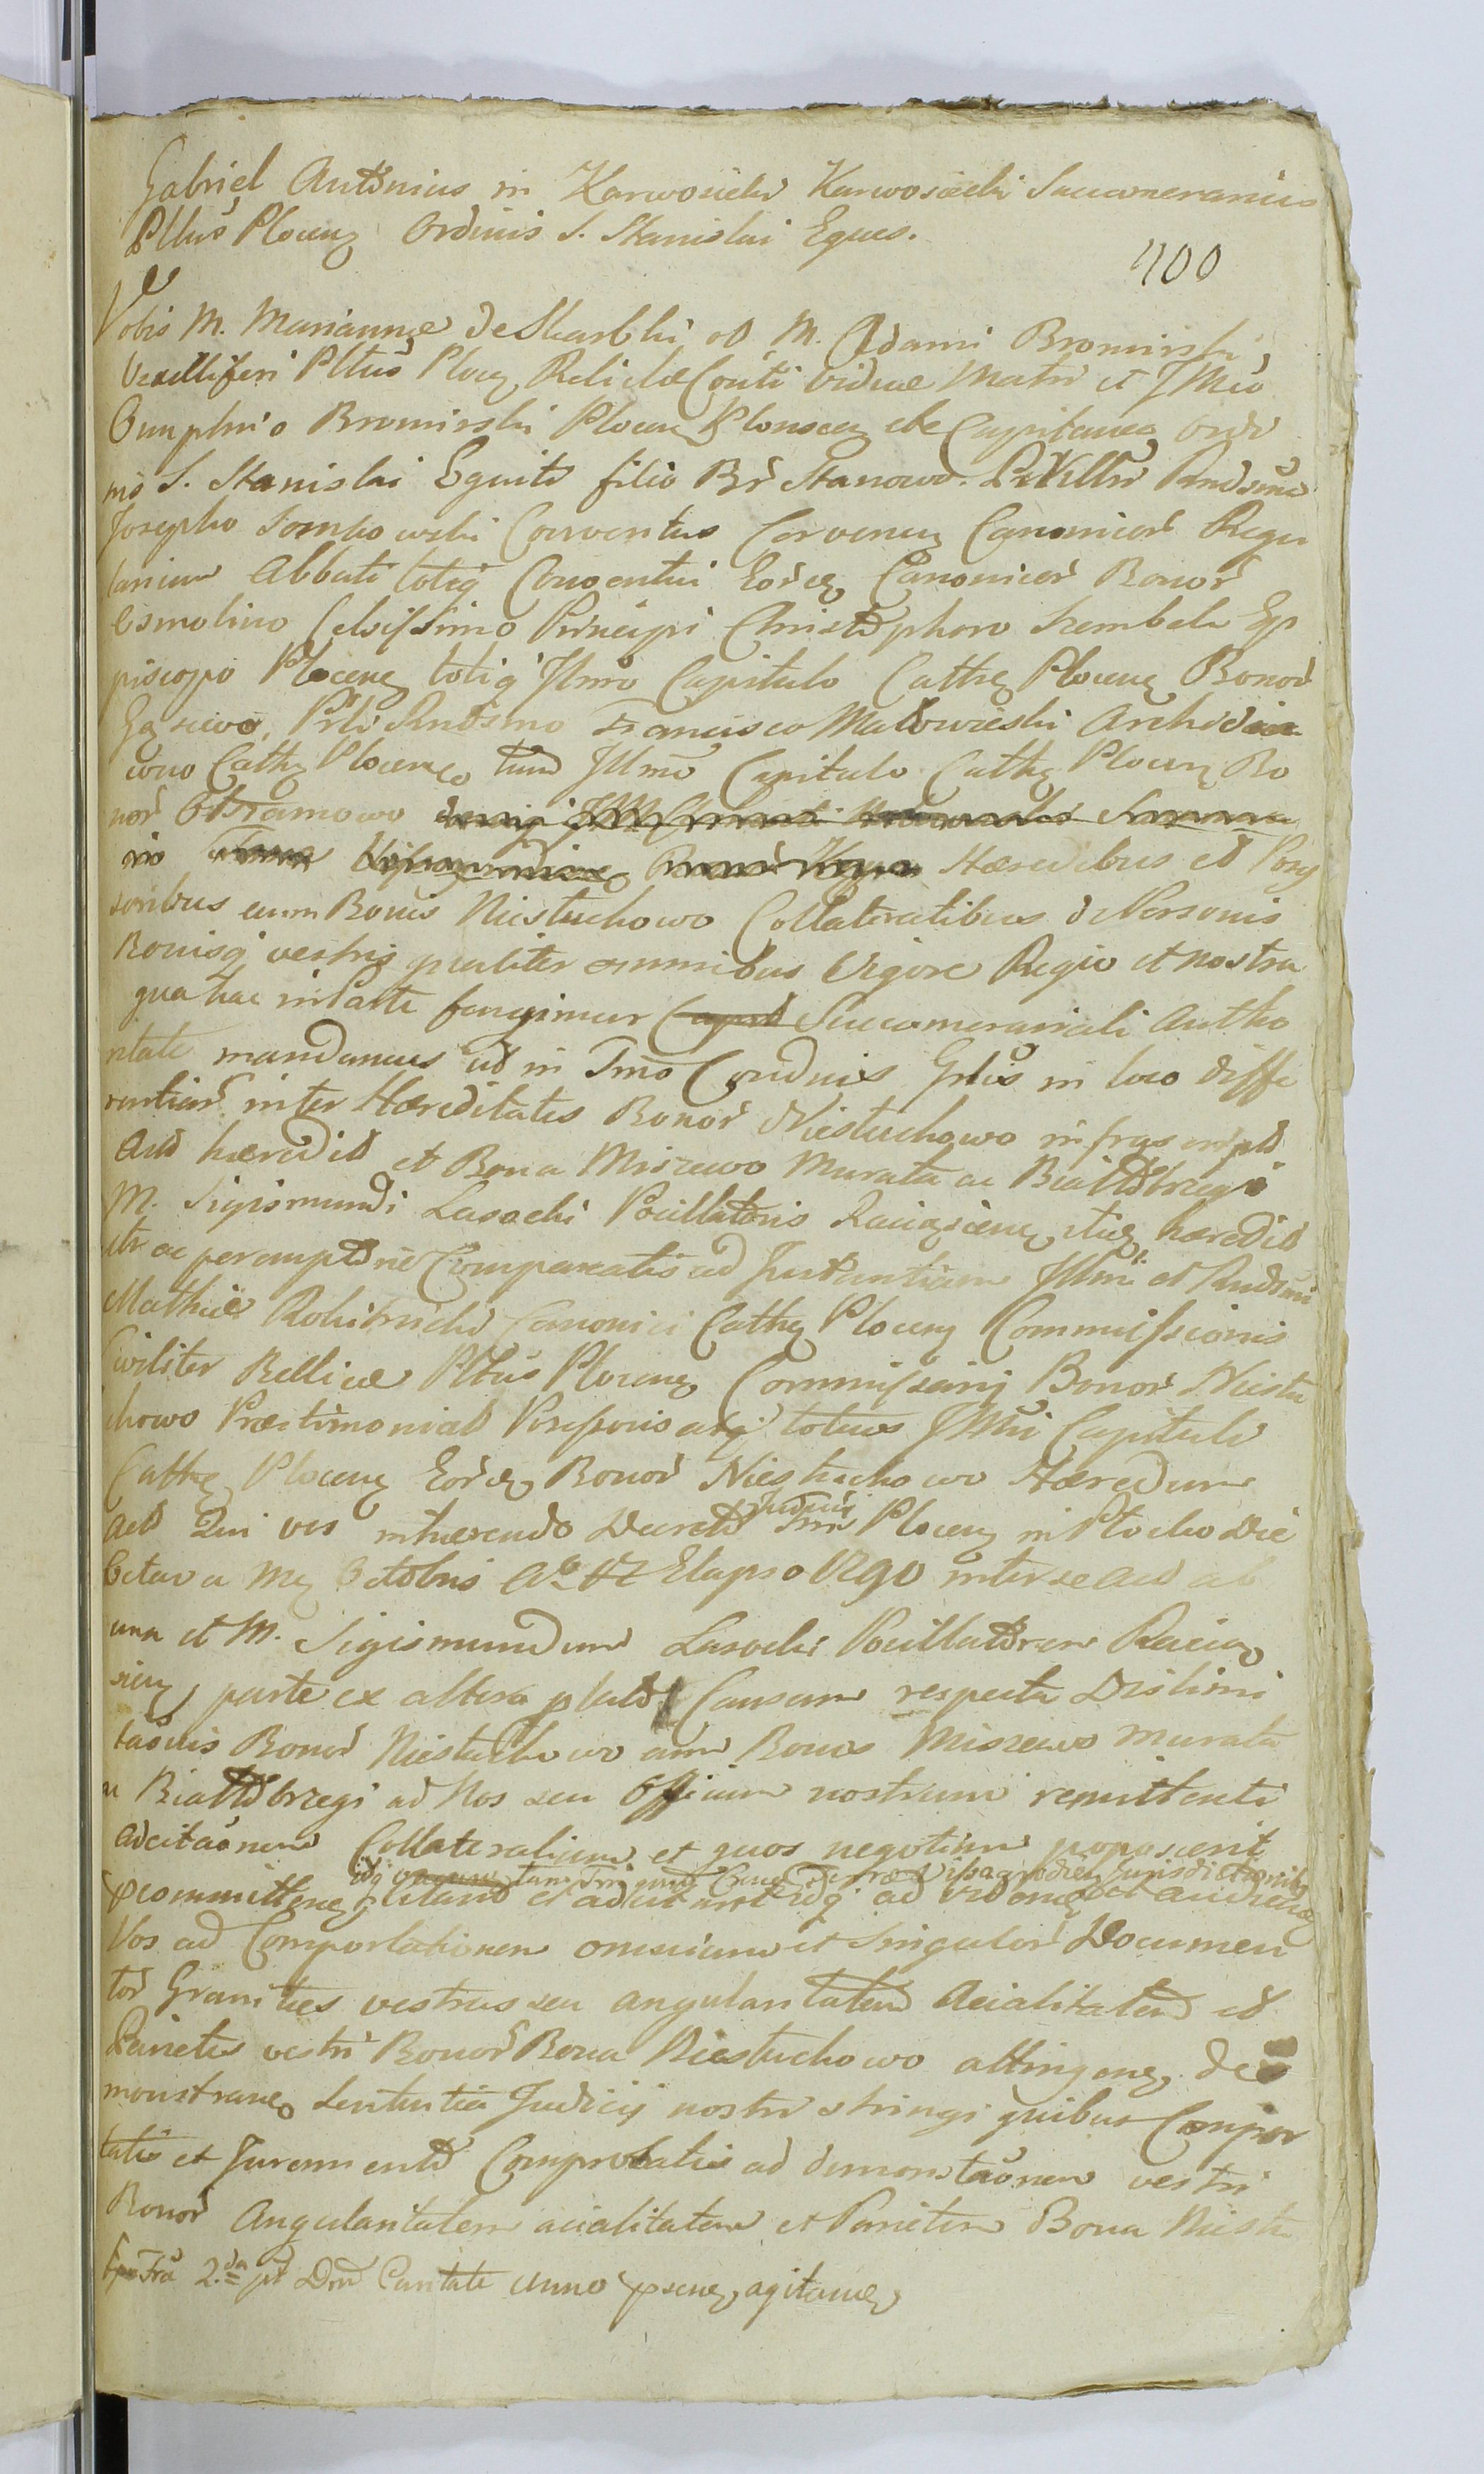 Gabriel Antonius in Karwosieki Karwosiecki Succamerarius
Pllus Plocen Ordinis S. Stanislai Eques.
400
Vobis M. Mariannæ de Skarbki ol M. Adami Bromirski
Vexilliferi Pltus Plocen Relictæ Conti viduæ Matri et JMco
Onuphrio Bromirski Plocen Plonscen Capitaneo Ordi
nis S. Stanislai Equiti filio Br Stanowo. Rndsmo
Josepho Conventus Cervenen Canonicor Regu
larium Abbati totiq Conventui Eorden Canonicor Bonor
Osmolino Celsissimo Principi Christophoro Szembek Ep
piscopo Plocen totiq Illmo Capitulo Cathen Plocen Bonor
Rndsmo Francisco Makowieski Archidia
cono Cathen Plocen tum Illmo Capitulo Cathen Plocen Bo
nor Obramowo
Hæredibus et Poss
soribus cum Bonis Niestuchowo Collateralibus de Personis
Bonisq vestris gnaliter omnibus Vigore Regio et nostra
qua hac in Parte fungimur Succamerariali Autho
ritate mandamus ut in Tmo Condnis Grlis in loco diffe
rentiar inter Hæreditates Bonor Niestuchowo infrascript
Act hæredit et Bona Miszewo Murata ac Białłobrzegi
M. Sigismundi Lasocki Pocillatoris Raciązien hæredit
ac peremptorie Compareatis ad Instantiam Illmi et Rndsmi
Mathiæ Rokitnicki Canonici Cathen Plocen Commissionis
Civiliter Bellicæ Pltus Plocen Commissarij Bonor Niestu
chowo Præstimonial Possessoris atq totius Illmi Capituli
Cathen Plocen Eorden Bonor Niestuchowo Hæredum
Act Qui vos inhærendo Decreto Judicii Tmi Plocen in Płocko Die
Octava Mens Octobris Ao Elapso 1790 inter se Act ab
una et M. Sigismundum Lasocki Pocillatorem Raciąz
sien, parte ex altera Causam respectu Dislimi
taonis Bonor Niestuchowo cum Bonis Miszewo Murata
ac Białłobrzegi ad Nos seu Officium nostrum remittenti
Adcitaonem Collateralium et quos negotium poposcerit
Jurisdictionibus
permitten et adcitant idq ad viden et audien
Vos ad Comportationem omnium et Singulor Documen
tor Granities vestras seu angularitatem Acialitatem et
Parietes vestri Bonor Bona Niestuchowo attingen de
monstran Sententia Judicij nostri stringi quibus Compor
tatis et Juramento Comprobatis ad demonstraonem vestri
Bonor Angularitatem acialitatem et Parietem Bona Niestu
Fra 2da pt Dnd Caritate anno psen, agitan